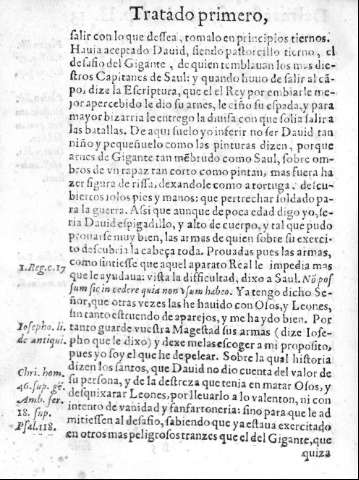 Tratado primero,
salir con lo que dessea, tomalo en principios tiernos.
Hauia aceptado Dauid, siendo pastorcillo tierno, el
desafio del Gigante, de quien temblauan los mas die-
stros Capitanes de Saul: y quando huuo de salir al cã-
po, dize la Escriptura, que el el Rey por embiarle me-
jor apercebido le dio su arnes, le ciño su espada, y para
mayor bizarria le entrego la diuisa con que solia salir a
las batallas. De aqui suelo yo inferir no ser Dauid tan
niño y pequeñuelo como las pinturas dizen, porque
arnes de Gigante tan mẽbrudo como Saul, sobre om-
bros de vn rapaz tan corto como pintan, mas fuera ha
zer figura de rissa, dexandole como a tortuga, descu-
biertos solos pies y manos: que pertrechar soldado pa-
ra la guerra. Assi que aunque de poca edad digo yo, se-
ria Dauid espigadillo, y alto de cuerpo, y tal que pudo
prouarse muy bien, las armas de quien sobre su exerci-
to descubria la cabeça toda. Prouadas pues las armas,
como sintiesse que aquel aparato Real le impedia mas
1. Reg. c. 17
que le ayudaua: vista la difficultad, dixo a Saul. Nõ pos
sum sic incedere quia non vsum habeo. Ya tengo dicho Se-
ñor, que otras vezes las he hauido con Osos, y Leones,
sin tanto estruendo de aparejos, y me ha ydo bien. Por
Iosepho. li.
de antiqui.
tanto guarde vuestra Magestad sus armas (dize Iose-
pho que le dixo) y dexe melas escoger a mi proposito,
pues yo soy el que he de pelear. Sobre la qual historia
dizen los santos, que Dauid no dio cuenta del valor de
Chri. hom.
46. sup. gẽ.
Amb. ser.
18. sup.
Psal. 118.
su persona, y de la destreza que tenia en matar Osos, y
desquixarar Leones, por lleuarlo a lo valenton, ni con
intento de vanidad y fanfarroneria: sino para que le ad
mitiessen al desafio, sabiendo que ya estaua exercitado
en otros mas peligrosos tranzes que el del Gigante, que
quiza